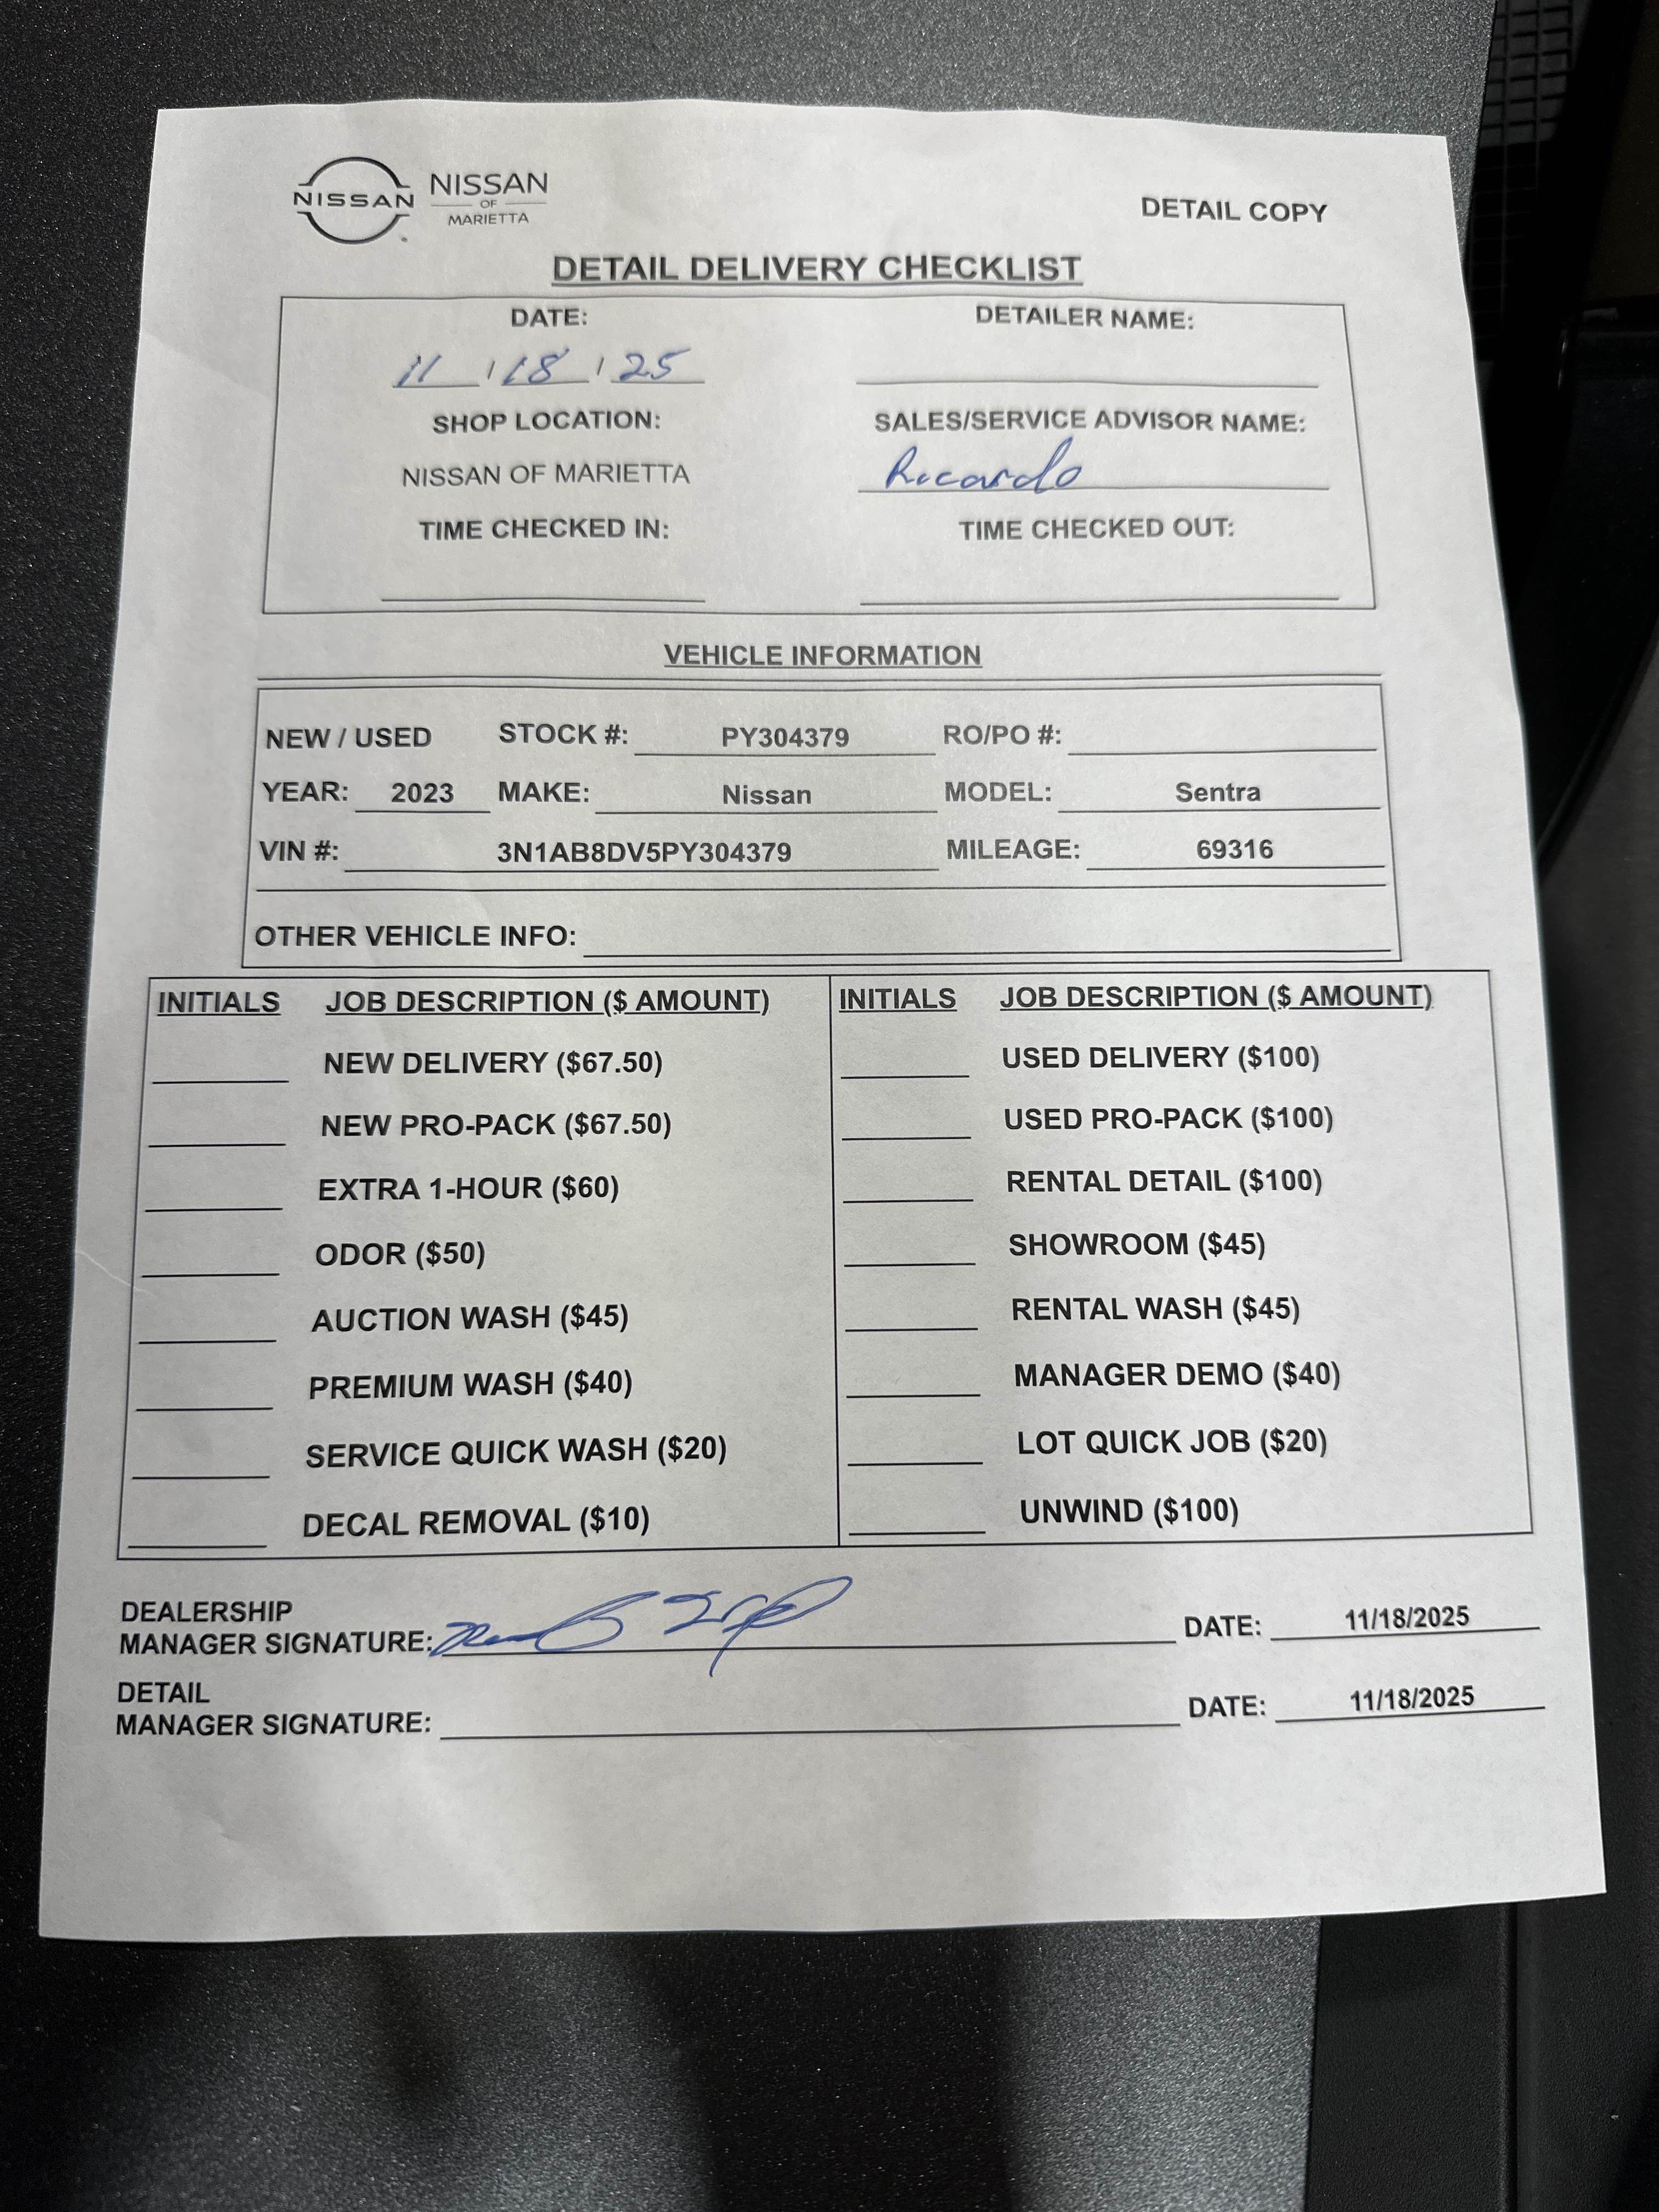 NISSAN NISSAN
OF
MARIETTA
DETAIL COPY
DETAIL DELIVERY CHECKLIST
DATE: DETAILER NAME:
11 / 18 / 25
SHOP LOCATION: SALES/SERVICE ADVISOR NAME:
NISSAN OF MARIETTA Ricardo
TIME CHECKED IN: TIME CHECKED OUT:
VEHICLE INFORMATION
NEW / USED STOCK #: PY304379 RO/PO #:
YEAR: 2023 MAKE: Nissan MODEL: Sentra
VIN #: 3N1AB8DV5PY304379 MILEAGE: 69316
OTHER VEHICLE INFO:
INITIALS JOB DESCRIPTION ($ AMOUNT) INITIALS JOB DESCRIPTION ($ AMOUNT)
NEW DELIVERY ($67.50) USED DELIVERY ($100)
NEW PRO-PACK ($67.50) USED PRO-PACK ($100)
EXTRA 1-HOUR ($60) RENTAL DETAIL ($100)
ODOR ($50) SHOWROOM ($45)
AUCTION WASH ($45) RENTAL WASH ($45)
PREMIUM WASH ($40) MANAGER DEMO ($40)
SERVICE QUICK WASH ($20) LOT QUICK JOB ($20)
DECAL REMOVAL ($10) UNWIND ($100)
DEALERSHIP
MANAGER SIGNATURE: DATE: 11/18/2025
DETAIL
MANAGER SIGNATURE: DATE: 11/18/2025